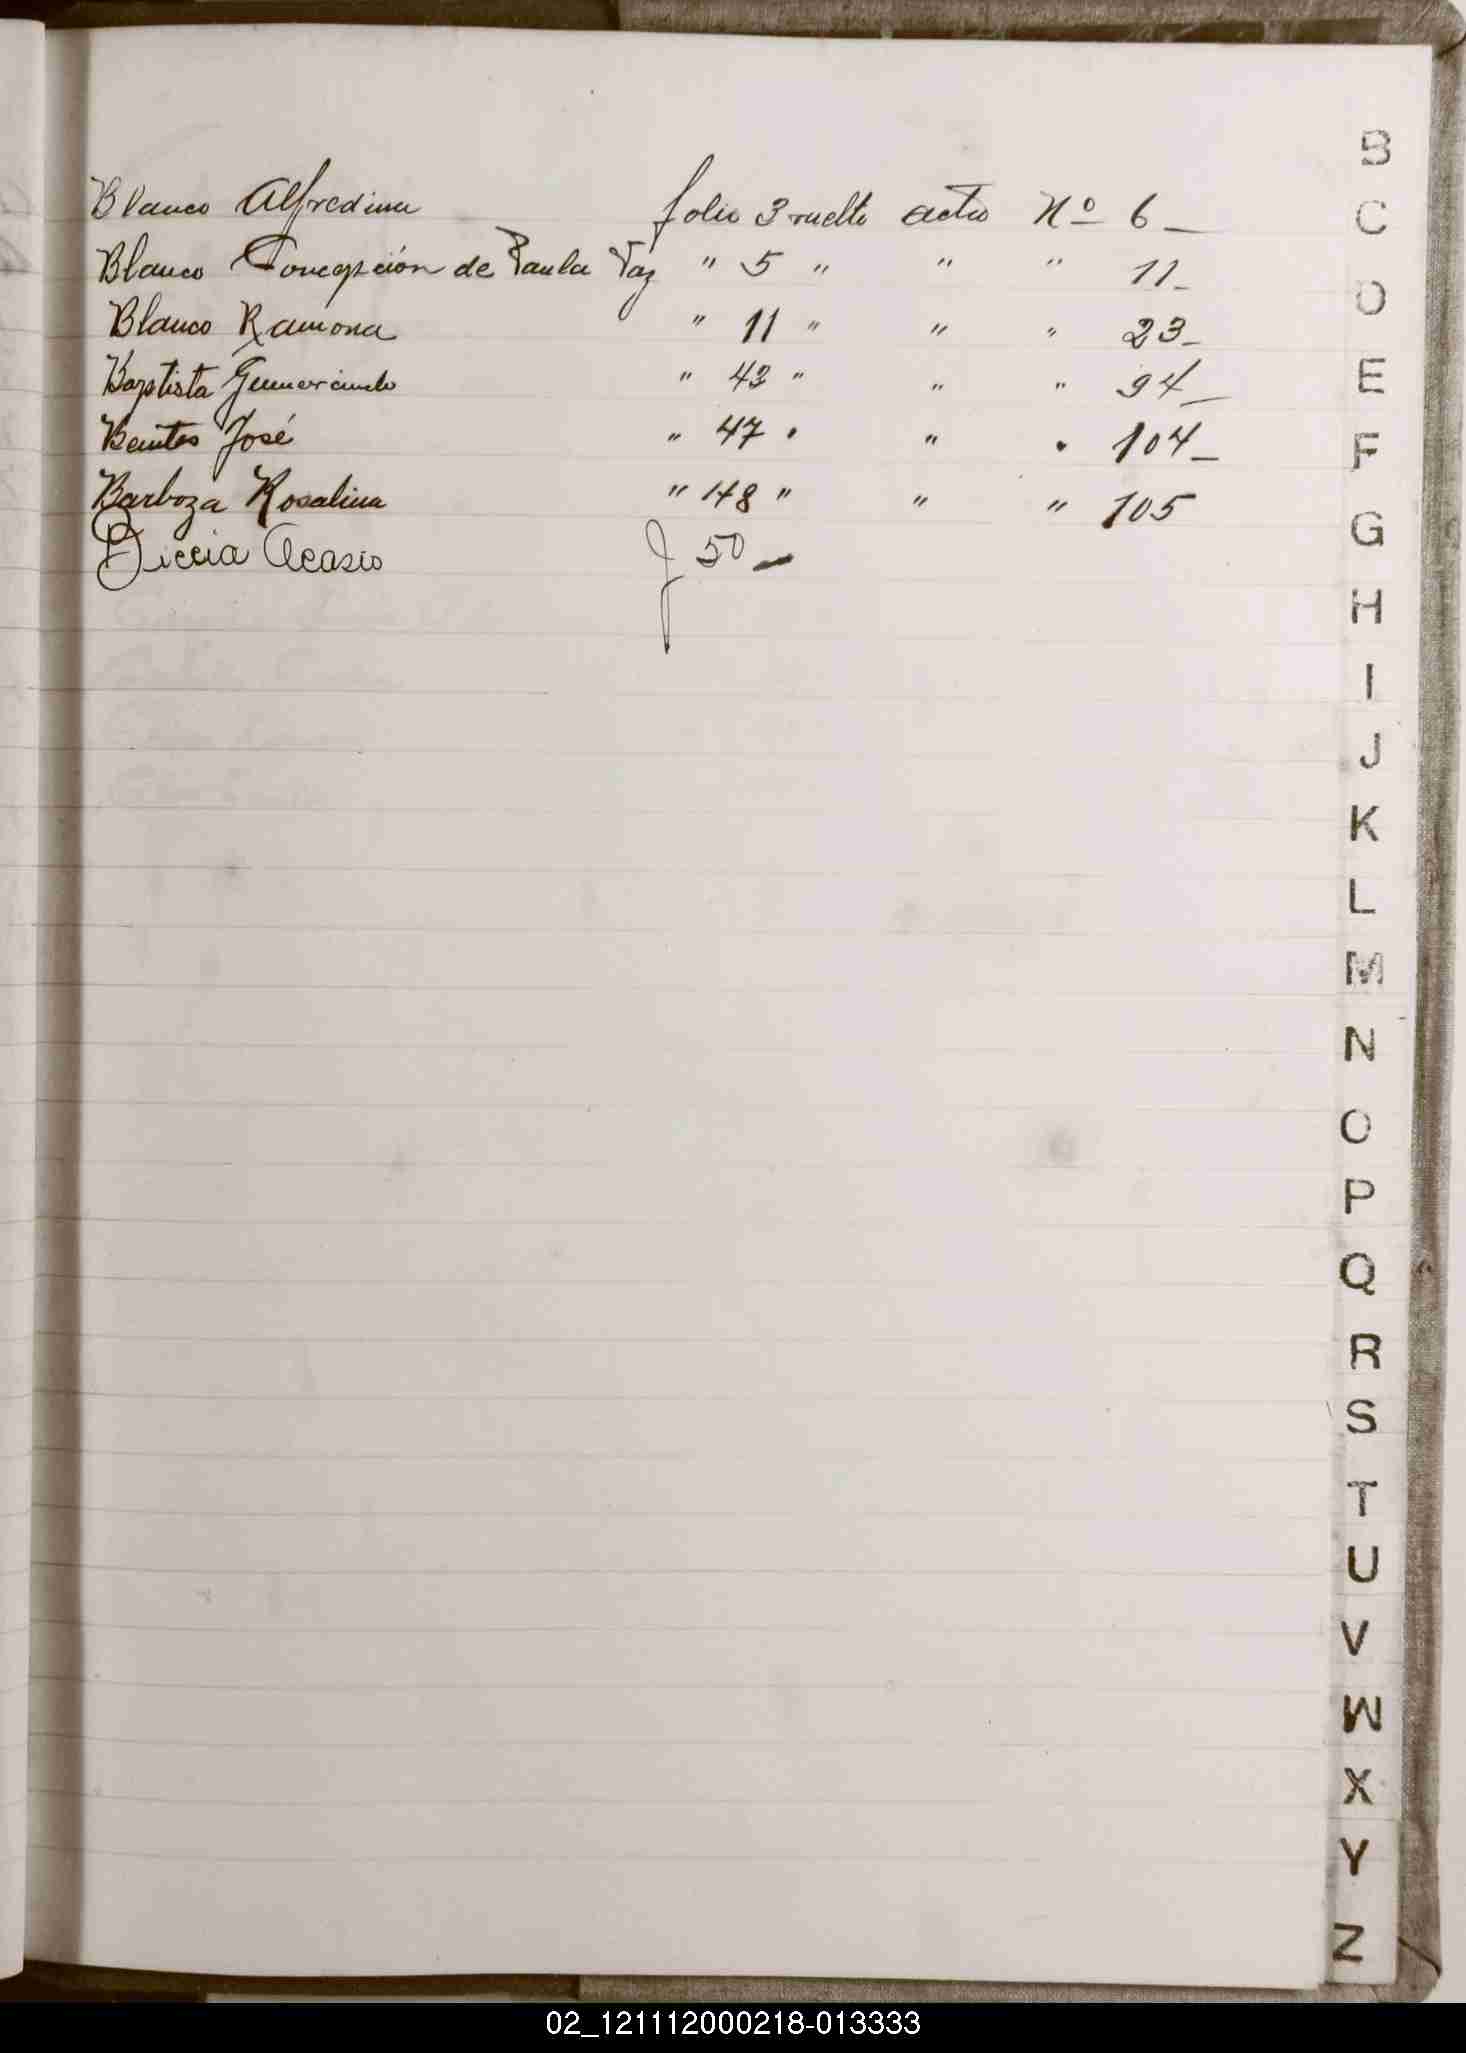 B
Blanco Alfredina folio 3 vuelto acta Nº 6 _
C
Blanco Concepción de Paula Vaz " 5 " " " 11 _
D
Blanco Ramona " 11 " " " 23 _
Baptista Gumercindo " 43 " " " 94 _
E
Benites José " 47 " " " 104 _
F
Barboza Rosalina " 48 " " " 105
G
Acasio f 50 _
H
I
J
K
L
M
N
O
P
Q
R
S
T
U
V
W
X
Y
Z
02_121112000218-013333